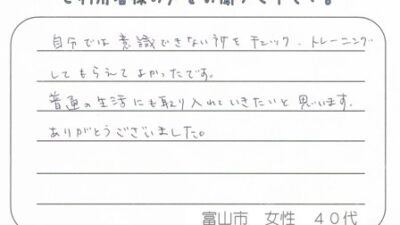 自分では意識できない所をチェック、トレーニング
してもらえてよかったです。
普通の生活にも取り入れていきたいと思います。
ありがとうございました。
富山市 女性 40代